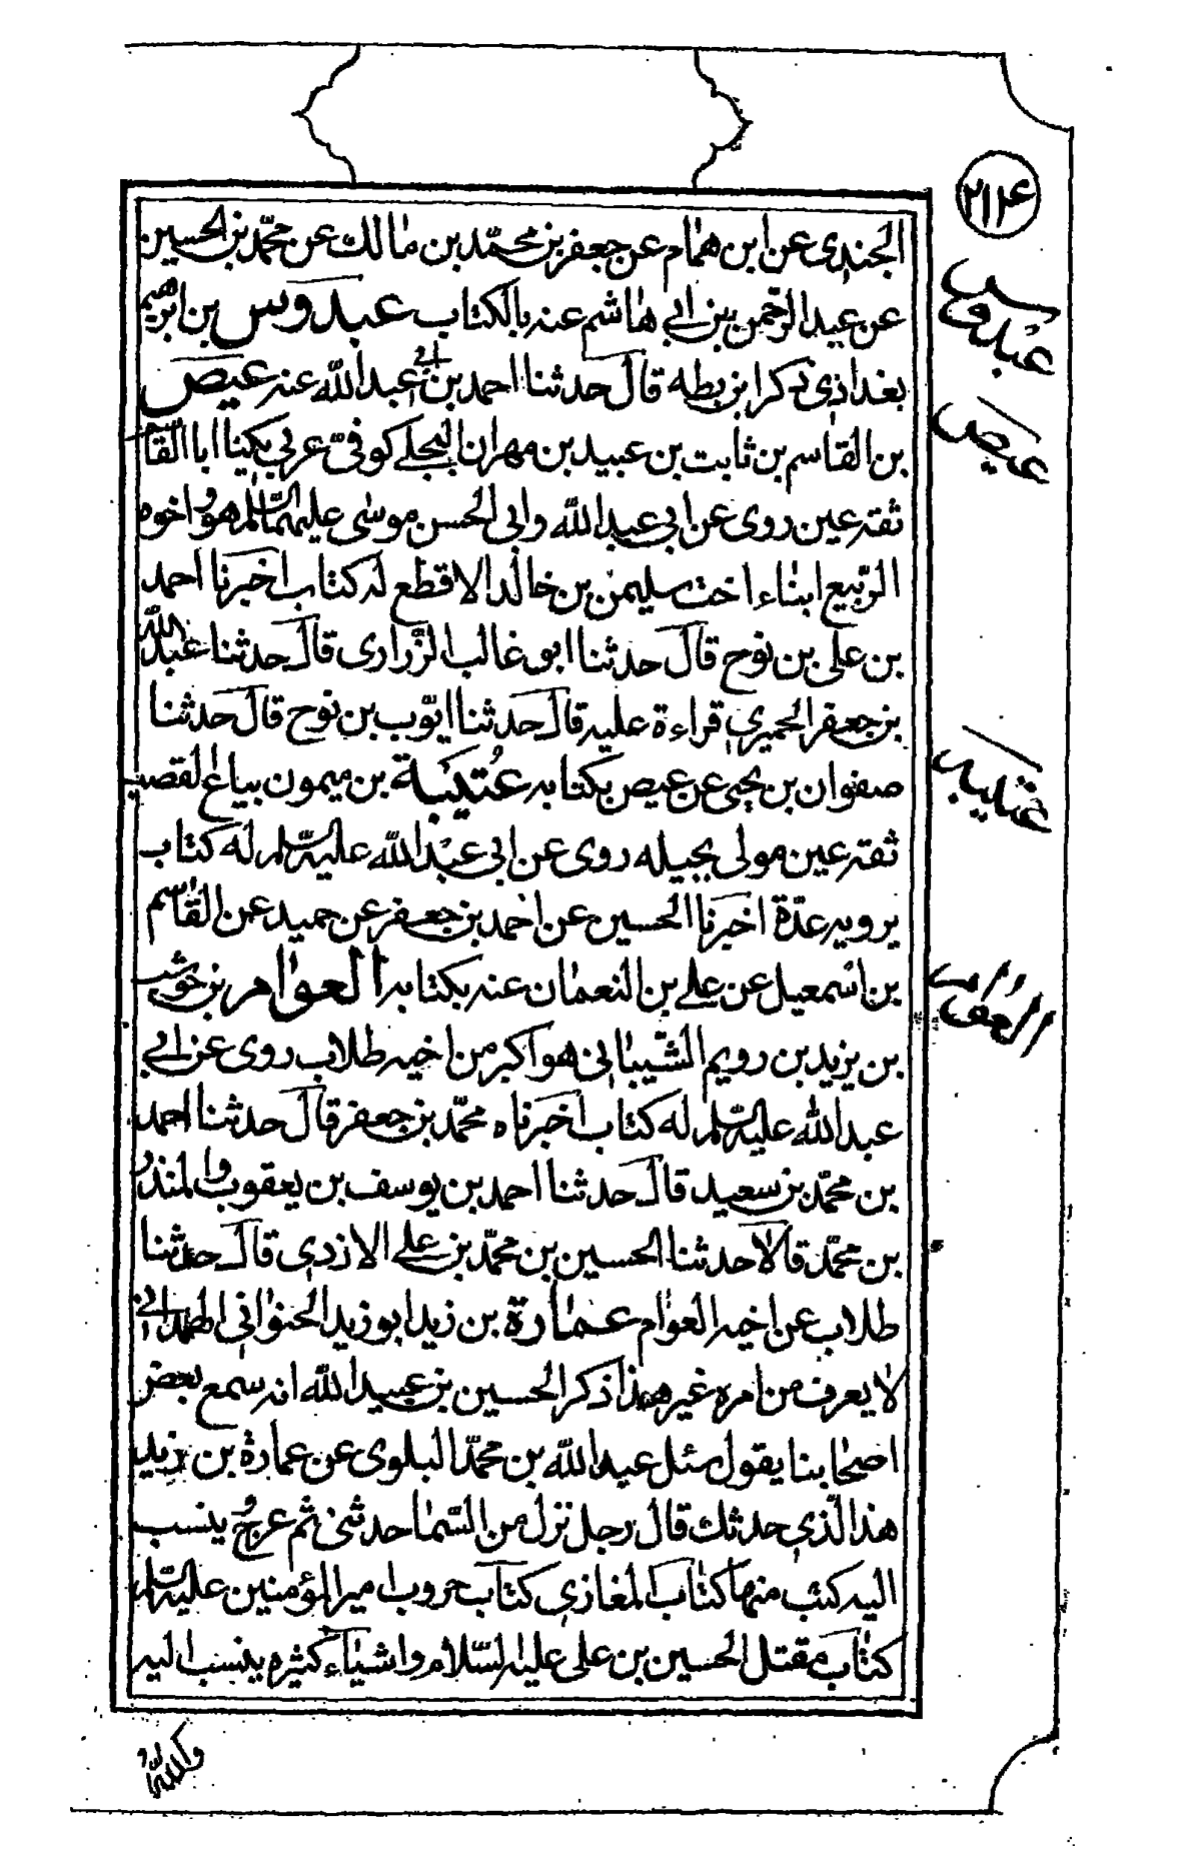 ٢١٤
الجندي عن ابن همام عن جعفر بن محمّد بن مالك عن محمّد بن الحسين
عن عبد الرّحمن بن ابي هاشم عنه بالكتاب عبدوس بن ابرهيم
عبدوس
بغداذي ذكر ابن بطه قال حدثنا احمد بن ابي عبد اللّه عنه عيص
عيص
بن القاسم بن ثابت بن عبيد بن مهران البجلي كوفيّ عربي يكنا ابا القا
ثقة عين روى عن ابي عبد اللّه وابي الحسن موسى عليهما السّلم هو واخوه
الرّبيع ابناء اخت سليمن بن خالد الاقطع له كتاب اخبرنا احمد
بن علي بن نوح قال حدثنا ابو غالب الزّراري قال حدثنا عبد اللّه
بن جعفر الحميري قراءة عليه قال حدثنا ايّوب بن نوح قال حدثنا
صفوان بن يحيى عن عيص بكتابه عُتَيبَة بن ميمون بياع القصب
عتيبه
ثقة عين مولى بجيله روى عن ابي عبد اللّه عليه السّلم له كتاب
يرويه عدّة اخبرنا الحسين عن احمد بن جعفر عن حميد عن القاسم
بن اسمعيل عن علي بن النعمان عنه بكتابه العوام بن حوشب
العوام
بن يزيد بن رويم الشّيباني هو اكبر من اخيه طلاب روى عن ابي
عبد اللّه عليه السّلم له كتاب اخبرناه محمّد بن جعفر قال حدثنا احمد
بن محمّد بن سعيد قال حدثنا احمد بن يوسف بن يعقوب والمنذر
بن محمّد قالا حدثنا الحسين بن محمّد بن علي الازدي قال حدثنا
طلاب عن اخيه العوام عمارة بن زيد ابو زيد الخيواني الهمداني
لا يعرف من امره غير هذا ذكر الحسين بن عبيد اللّه انه سمع بعض
اصحابنا يقول سئل عبد اللّه بن محمّد البلوى عن عمارة بن زيد
هذا الّذي حدثك قال رجل نزل من السّما حدثني ثم عرج وينسب
اليه كتب منها كتاب المغازي كتاب حروب امير المؤمنين عليه السّلم
كتاب مقتل الحسين بن علي عليه السّلام واشياء كثيره ينسب اليه